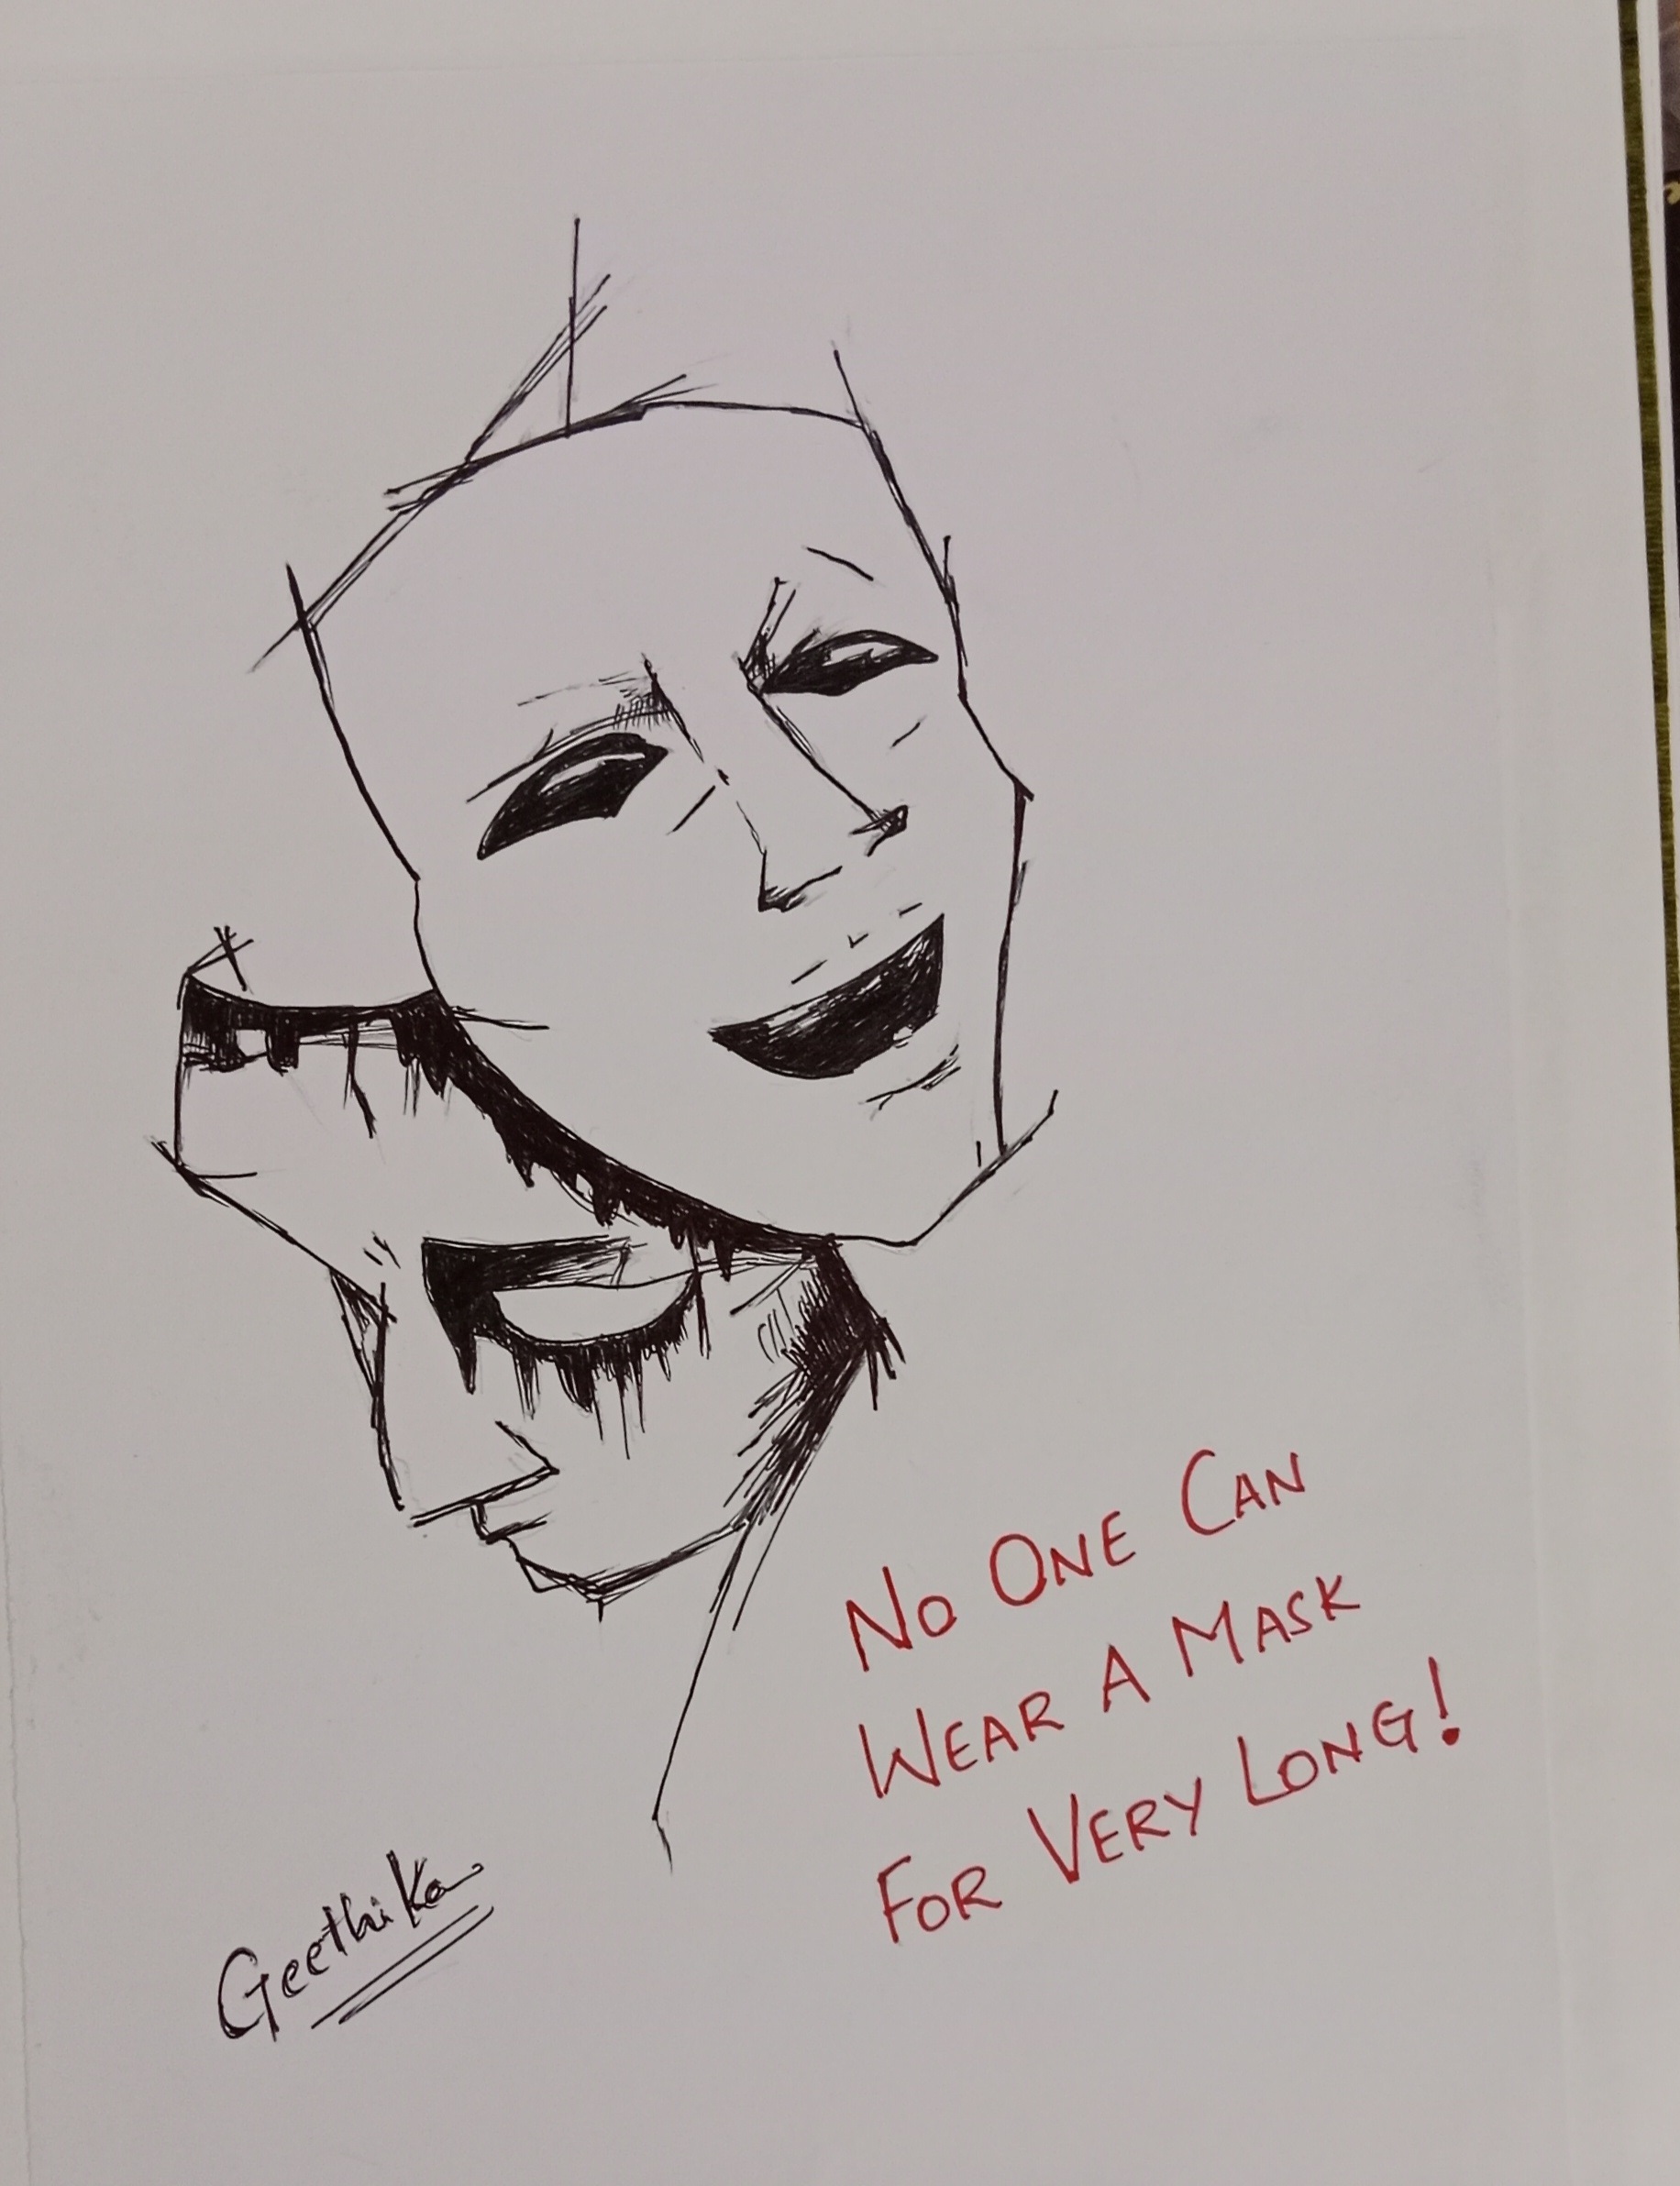 No One Can
Wear A Mask
For Very Long!
Geethika